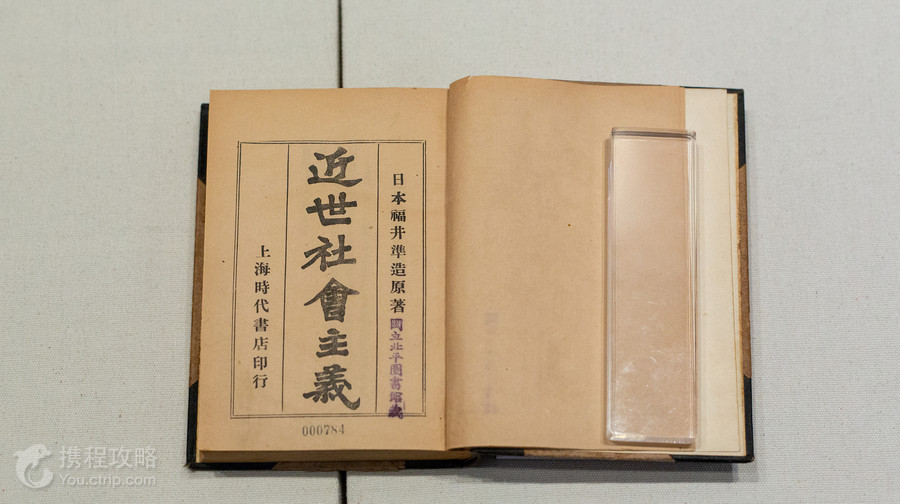 日本福井準造原著
國立北平圖書館藏
近世社會主義
上海時代書店印行
000784
携程攻略
You.ctrip.com